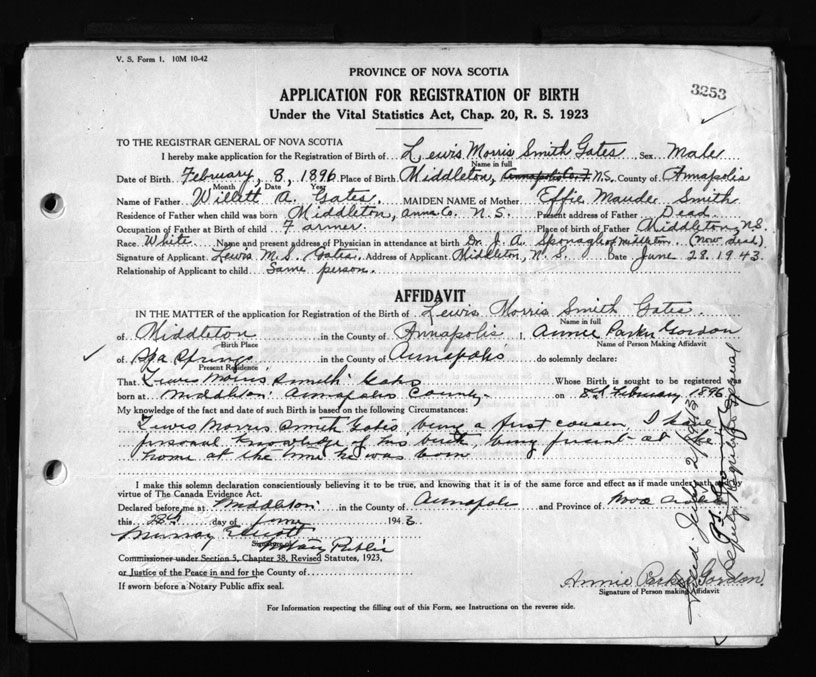 V. S. Form 1. 10M 10-42
PROVINCE OF NOVA SCOTIA
3253
APPLICATION FOR REGISTRATION OF BIRTH
Under the Vital Statistics Act, Chap. 20, R. S. 1923
TO THE REGISTRAR GENERAL OF NOVA SCOTIA
I hereby make application for the Registration of Birth of Lewis Morris Smith Gates Sex Male
Name in full
Date of Birth February, 8, 1896 Place of Birth Middleton, N.S. County of Annapolis
Month Date Year
Name of Father Willett A. Gates. MAIDEN NAME of Mother Effie Maude Smith
Residence of Father when child was born Middleton, Anna Co. N. S. Present address of Father Dead.
Occupation of Father at Birth of child Farmer Place of birth of Father Middleton, N.S.
Race White Name and present address of Physician in attendance at birth Dr. J. A. Sponagle of Middleton. (Now dead).
Signature of Applicant Lewis M. S. Gates. Address of Applicant Middleton, N. S. Date June 28. 1943.
Relationship of Applicant to child Same person.
AFFIDAVIT
IN THE MATTER of the application for Registration of the Birth of Lewis Morris Smith Gates
Name in full
of Middleton in the County of Annapolis I, Annie Parker Gordon
Birth Place Name of Person Making Affidavit
of Spa Springs in the County of Annapolis do solemnly declare:
Present Residence
That Lewis Morris Smith Gates Whose Birth is sought to be registered was
born at Middleton Annapolis County on 8th February 1896
My knowledge of the fact and date of such Birth is based on the following Circumstances:
Lewis Morris Smith Gates being a first cousin, I have
personal knowledge of his birth being present at the
home at the time he was born
I make this solemn declaration conscientiously believing it to be true, and knowing that it is of the same force and effect as if made under oath and by
virtue of The Canada Evidence Act.
Declared before me at Middleton in the County of Annapolis and Province of Nova Scotia
this 28th day of June 1943
Murray Elliott
Signature of Notary Public
Commissioner under Section 5, Chapter 38, Revised Statutes, 1923,
or Justice of the Peace in and for the County of
If sworn before a Notary Public affix seal.
Annie Parker Gordon
Signature of Person making Affidavit
For Information respecting the filling out of this Form, see Instructions on the reverse side.